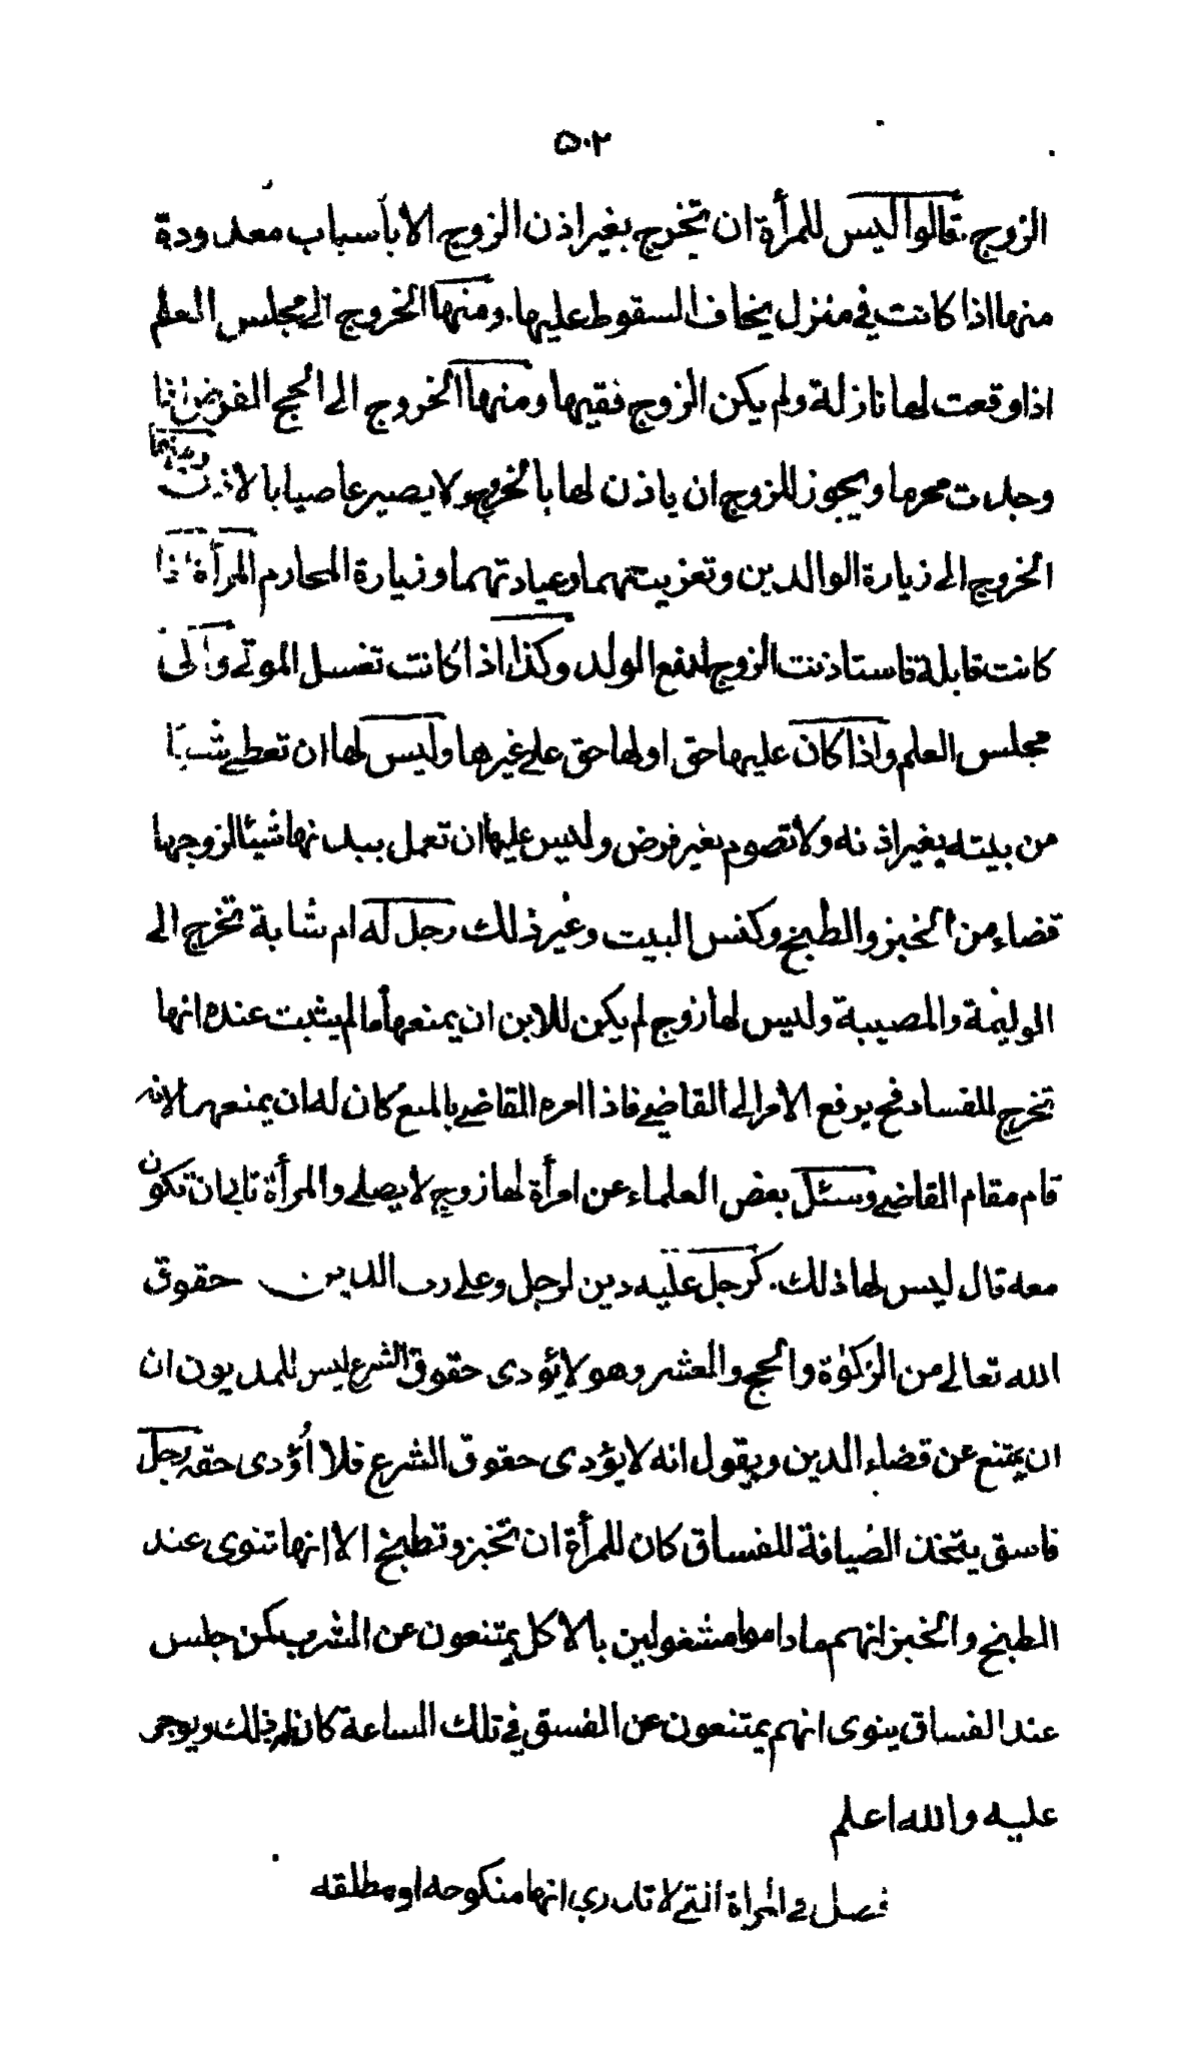 ۵۰۲
الزوج. قالوا ليس للمرأة ان تخرج بغير اذن الزوج الا بأسباب معدودة
منها اذا كانت في منزل يخاف السقوط عليها. ومنها الخروج الى مجلس العلم
اذا وقعت لها نازلة ولم يكن الزوج فقيها ومنها الخروج الى الحج الفرض اذا
وجدت محرما ويجوز للزوج ان ياذن لها بالخروج ولا يصير عاصيا بالاذن ومنها
الخروج الى زيارة الوالدين وتعزيتهما وعيادتهما وزيارة المحارم المرأة اذا
كانت قابلة فاستاذنت الزوج لدفع الولد وكذا اذا كانت تغسل الموتى والى
مجلس العلم واذا كان عليها حق او لها حق على غيرها وليس لها ان تعطي شيئا
من بيته بغير اذنه ولا تصوم بغير فرض وليس عليها ان تعمل ببدنها شيئا لزوجها
قضاء من الخبز والطبخ وكنس البيت وغير ذلك رجل له ام شابة تخرج الى
الوليمة والمصيبة وليس لها زوج لم يكن للابن ان يمنعها ما لم يثبت عنده انها
تخرج للفساد فح يرفع الامر الى القاضي فاذا امره القاضي بالمنع كان له ان يمنعها لانه
قام مقام القاضي وسئل بعض العلماء عن امرأة لها زوج لا يصلي والمرأة تابى ان تكون
معه قال ليس لها ذلك. كرجل عليه دين لرجل وعلى رب الدين حقوق
الله تعالى من الزكوة والحج والعشر وهو لا يؤدى حقوق الشرع ليس للمديون ان
ان يمتنع عن قضاء الدين ويقول انه لا يؤدى حقوق الشرع فلا اُؤدى حقه رجل
فاسق يتخذ الضيافة للفساق كان للمرأة ان تخبز وتطبخ الا انها تنوى عند
الطبخ والخبز انهم ما داموا مشغولين بالاكل يمتنعون عن الشرب كمن جلس
عند الفساق ينوى انهم يمتنعون عن الفسق في تلك الساعة كان له ذلك ويوجر
عليه والله اعلم
فصل في المراة التي لا تدري انها منكوحه او مطلقه